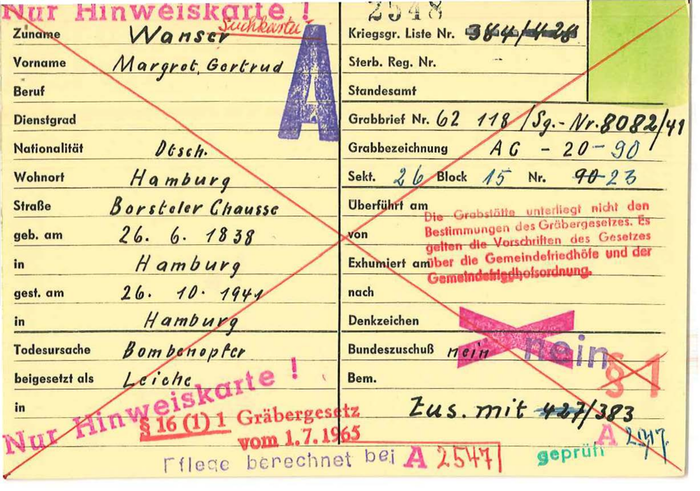 Nur Hinweiskarte !
Suchkartei
2548
Zuname Wanser
Vorname Margrot, Gertrud
Beruf
Dienstgrad
Nationalität Dtsch.
Wohnort Hamburg
Straße Borsteler Chausse
geb. am 26. 6. 1838
in Hamburg
gest. am 26. 10. 1941
in Hamburg
Todesursache Bombenopfer
beigesetzt als Leiche
in
A
Kriegsgr. Liste Nr. 384/428
Sterb. Reg. Nr.
Standesamt
Grabbrief Nr. 62 118 /Sg.-Nr. 8082/41
Grabbezeichnung AC - 20 - 90
Sekt. 26 Block 15 Nr. 90 23
Überführt am
von
Exhumiert am
nach
Die Grabstätte unterliegt nicht den
Bestimmungen des Gräbergesetzes. Es
gelten die Vorschriften des Gesetzes
über die Gemeindefriedhöfe und der
Gemeindefriedhofsordnung.
Denkzeichen
Bundeszuschuß nein nein
Bem.
§ 1
Zus. mit 427/383
Nur Hinweiskarte !
§ 16 (1) 1 Gräbergesetz
vom 1.7.1965
Pflege berechnet bei A 2547
geprüft
A 2547